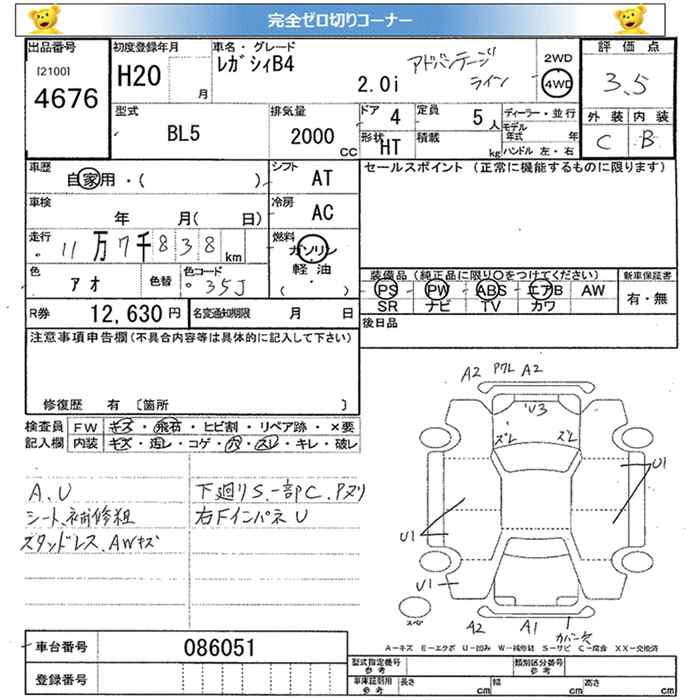 完全ゼロ切りコーナー
出品番号
[2100]
4676
初度登録年月
H20
月
車名・グレード
レガシィB4
2.0i
アドバンテージ
ライン
2WD
4WD
評価点
3.5
外装 内装
C B
型式
BL5
排気量
2000
CC
ドア 4
定員 5 人
形状 HT
積載 kg
ディーラー・並行
モデル
年式 年
ハンドル 左・右
車歴
自家用・( )
シフト
AT
車検
年 月( 日)
冷房
AC
走行
11万7千838 km
燃料
ガソリン
軽油
( ・ )
色
アオ
色替
色コード
35J
R券 12,630 円
名変通知期限 月 日
セールスポイント (正常に機能するものに限ります)
装備品 (純正品に限り○をつけてください)
新車保証書
PS PW ABS エアB AW
有・無
SR ナビ TV カワ
後日品
注意事項申告欄(不具合内容等は具体的に記入して下さい)
修復歴 有 〔箇所 〕
検査員
記入欄
FW キズ・飛石・ヒビ割・リペア跡・×要
内装 キズ・汚レ・コゲ・穴・スレ・キレ・破レ
A、U
シート、補修粗
スタッドレス、AWキズ
下廻りS、一部C、Pヌリ
右FインパネU
A2 A2
U3
ズレ ズレ
U1
U1
U1
A2 A1
カバー欠
スペア
A-キズ E-エクボ U-凹み W-補修跡 S-サビ C-腐食 XX-交換済
車台番号
086051
登録番号
型式指定番号
参考
類別区分番号
参考
車庫証明用
参考
長さ cm
幅 cm
高さ cm